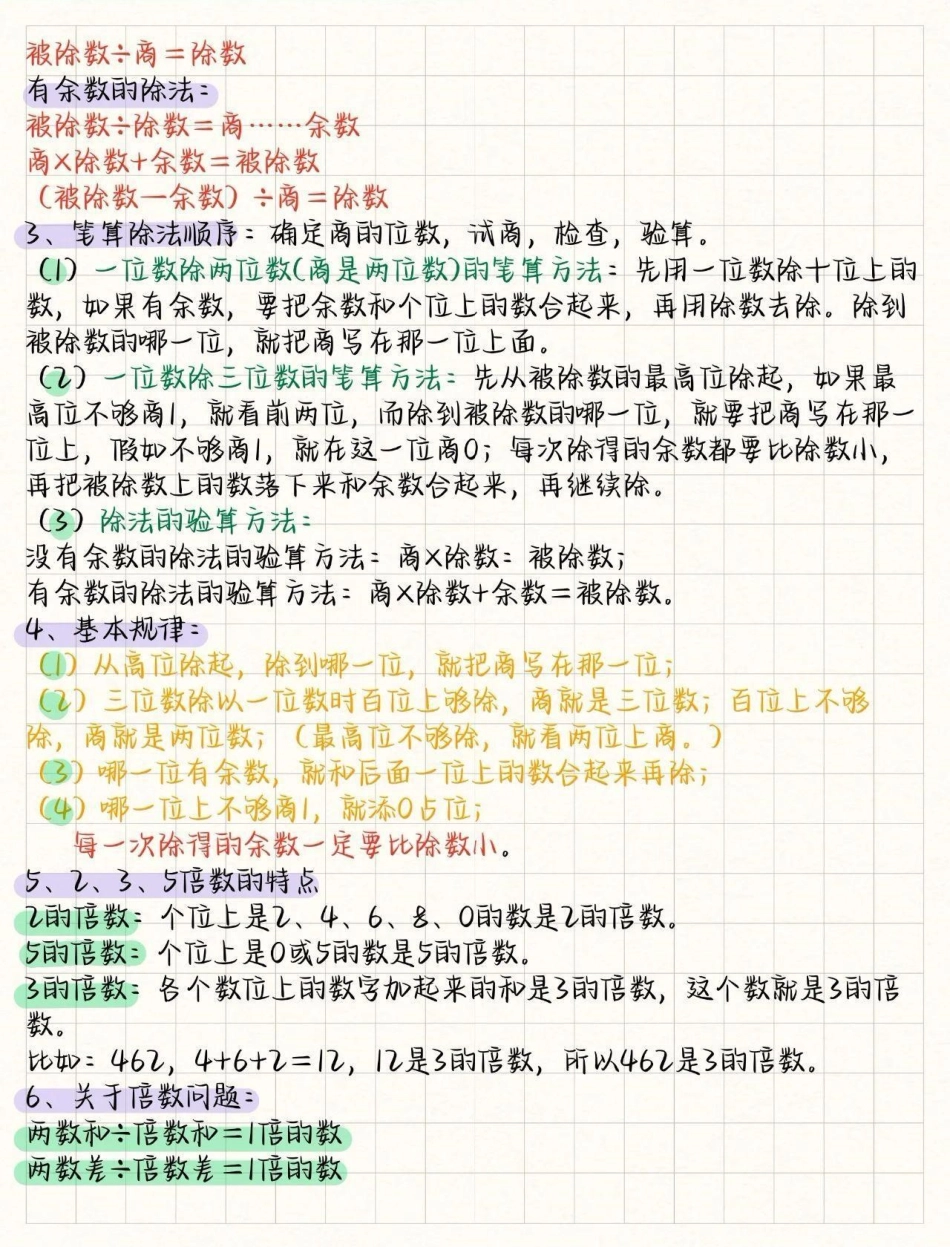 被除数÷商＝除数
有余数的除法：
被除数÷除数＝商……余数
商×除数+余数＝被除数
（被除数一余数）÷商＝除数
3、笔算除法顺序：确定商的位数，试商，检查，验算。
（1）一位数除两位数(商是两位数)的笔算方法：先用一位数除十位上的
数，如果有余数，要把余数和个位上的数合起来，再用除数去除。除到
被除数的哪一位，就把商写在那一位上面。
（2）一位数除三位数的笔算方法：先从被除数的最高位除起，如果最
高位不够商1，就看前两位，而除到被除数的哪一位，就要把商写在那一
位上，假如不够商1，就在这一位商0；每次除得的余数都要比除数小，
再把被除数上的数落下来和余数合起来，再继续除。
（3）除法的验算方法：
没有余数的除法的验算方法：商×除数：被除数；
有余数的除法的验算方法：商×除数+余数＝被除数。
4、基本规律：
（1）从高位除起，除到哪一位，就把商写在那一位；
（2）三位数除以一位数时百位上够除，商就是三位数；百位上不够
除，商就是两位数；（最高位不够除，就看两位上商。）
（3）哪一位有余数，就和后面一位上的数合起来再除；
（4）哪一位上不够商1，就添0占位；
每一次除得的余数一定要比除数小。
5、2、3、5倍数的特点
2的倍数：个位上是2、4、6、8、0的数是2的倍数。
5的倍数：个位上是0或5的数是5的倍数。
3的倍数：各个数位上的数字加起来的和是3的倍数，这个数就是3的倍
数。
比如：462，4+6+2＝12，12是3的倍数，所以462是3的倍数。
6、关于倍数问题：
两数和÷倍数和＝1倍的数
两数差÷倍数差＝1倍的数